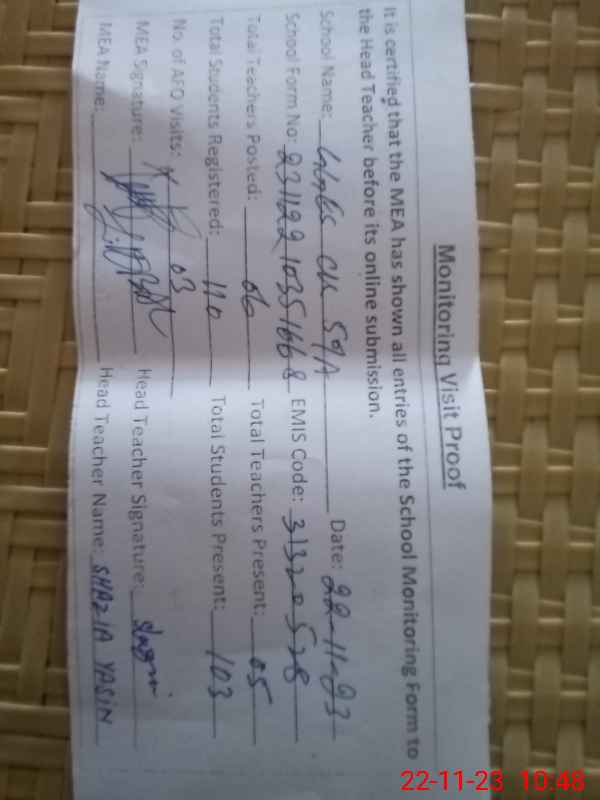 Monitoring Visit Proof
It is certified that the MEA has shown all entries of the School Monitoring Form to
the Head Teacher before its online submission.
School Name: CH 59A Date: 22-11-23
School Form No: 23112210351668 EMIS Code: 31320528
Total Teachers Posted: 06 Total Teachers Present: 05
Total Students Registered: 110 Total Students Present: 103
No. of AEO Visits: 03
MEA Signature: Head Teacher Signature:
MEA Name: Head Teacher Name: SHAZIA YASIN
22-11-23 10:48